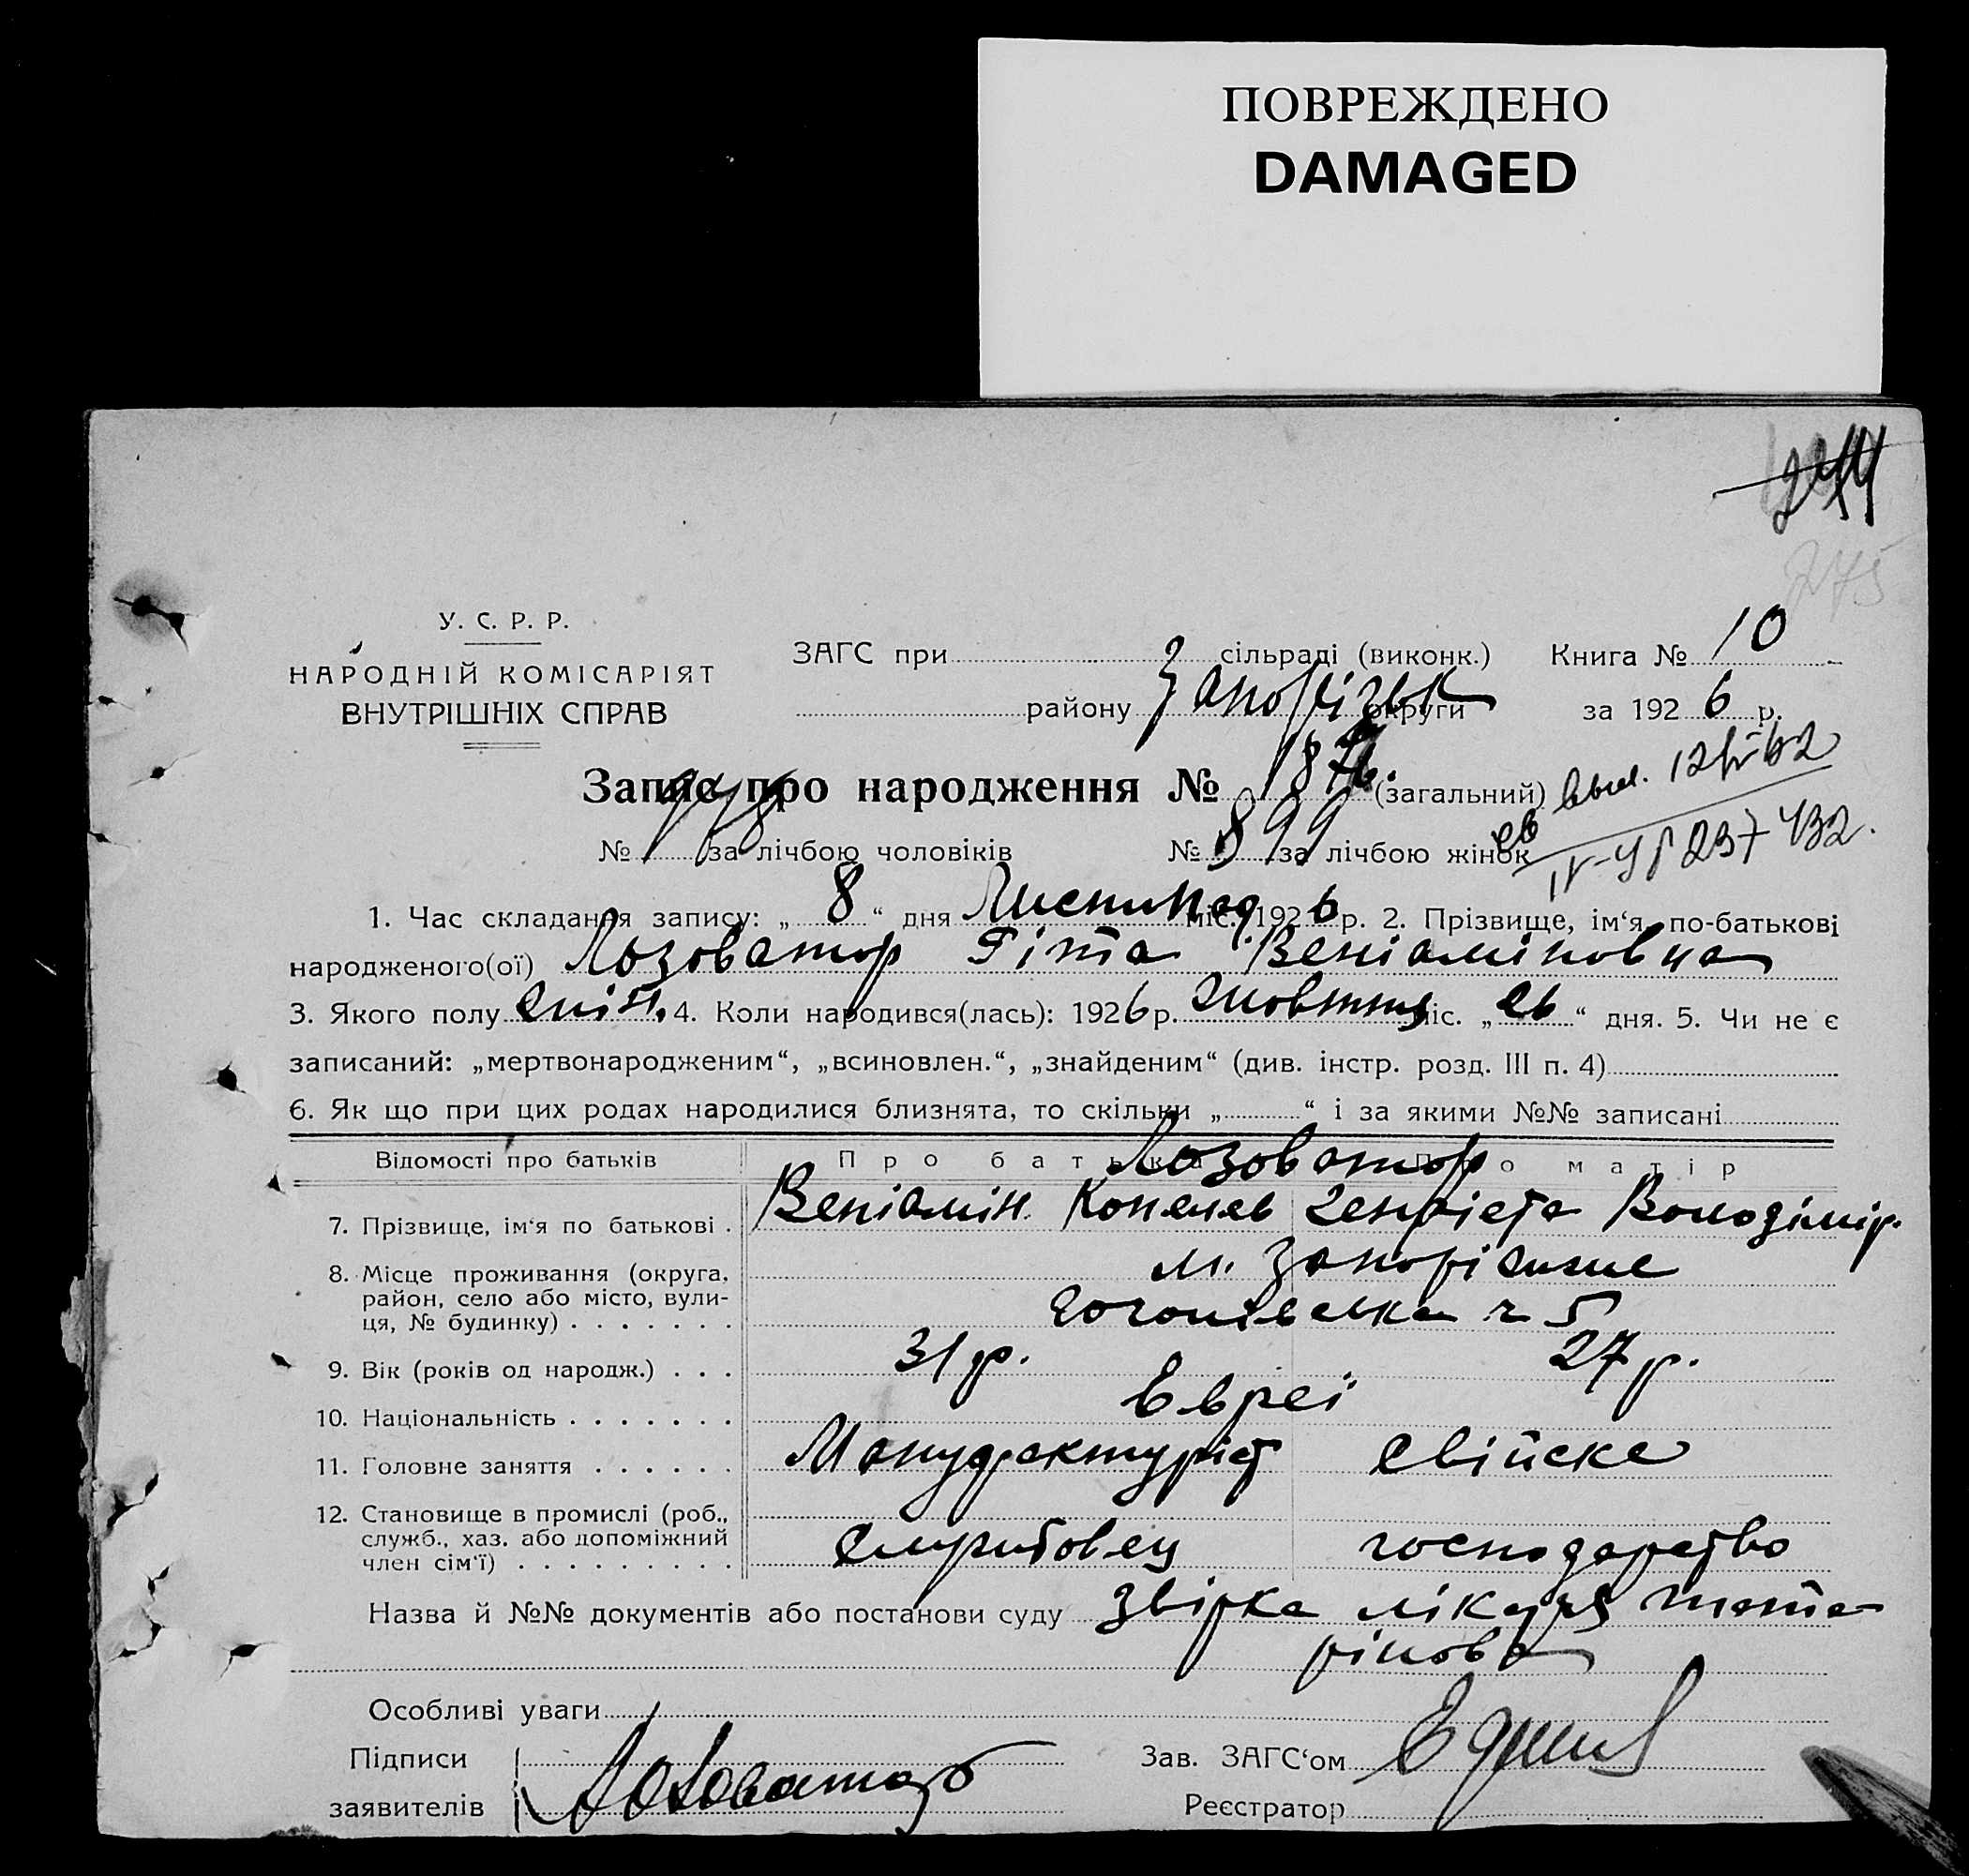 ПОВРЕЖДЕНО
DAMAGED
244
275
У. С. Р. Р.
НАРОДНІЙ КОМІСАРІЯТ
ВНУТРІШНІХ СПРАВ
ЗАГС при сільраді (виконк.) Книга № 10
району Запоріzьк округи за 1926 р.
Запис про народження № 187 (загальний) 12/IV 62
№ за лічбою чоловіків № 899 за лічбою жінок
IV-ЯР 237432.
1. Час складання запису: „ 8 “ дня Листипад міс. 1926 р. 2. Прізвище, ім‘я, по-батькові
народженого(ої) Лозоватор Гіта Веніаміновна
3. Якого полу жін. 4. Коли народився(лась): 1926 р. жовтня міс. „ 26 “ дня. 5. Чи не є
записаний: „мертвонародженим“, „всиновлен.“, „знайденим“ (див. інстр. розд. III п. 4)
6. Як що при цих родах народилися близнята, то скільки „ “ і за якими №№ записані
Відомості про батьків Про батька Про матір
Лозоватор
7. Прізвище, ім‘я по батькові . Веніамін Копелев Генрієта Володімір.
8. Місце проживання (округа, район, село або місто, вули-ця, № будинку) . . . . . . . м. Запоріжжє
Гоголівська ч 5
9. Вік (років од народж.) . . . 31 р. 27 р.
10. Національність . . . . . . . Евреі
11. Головне заняття . . . . . . Мануфактуріст свійске
12. Становище в промислі (роб., служб., хаз. або допоміжний член сім‘ї) . . . . . . . . . службовец господарство
Назва й №№ документів або постанови суду Звірка лікаря Тата
рінова
Особливі уваги
Підписи
заявителів Лозоватор
Зав. ЗАГС‘ом
Реєстратор